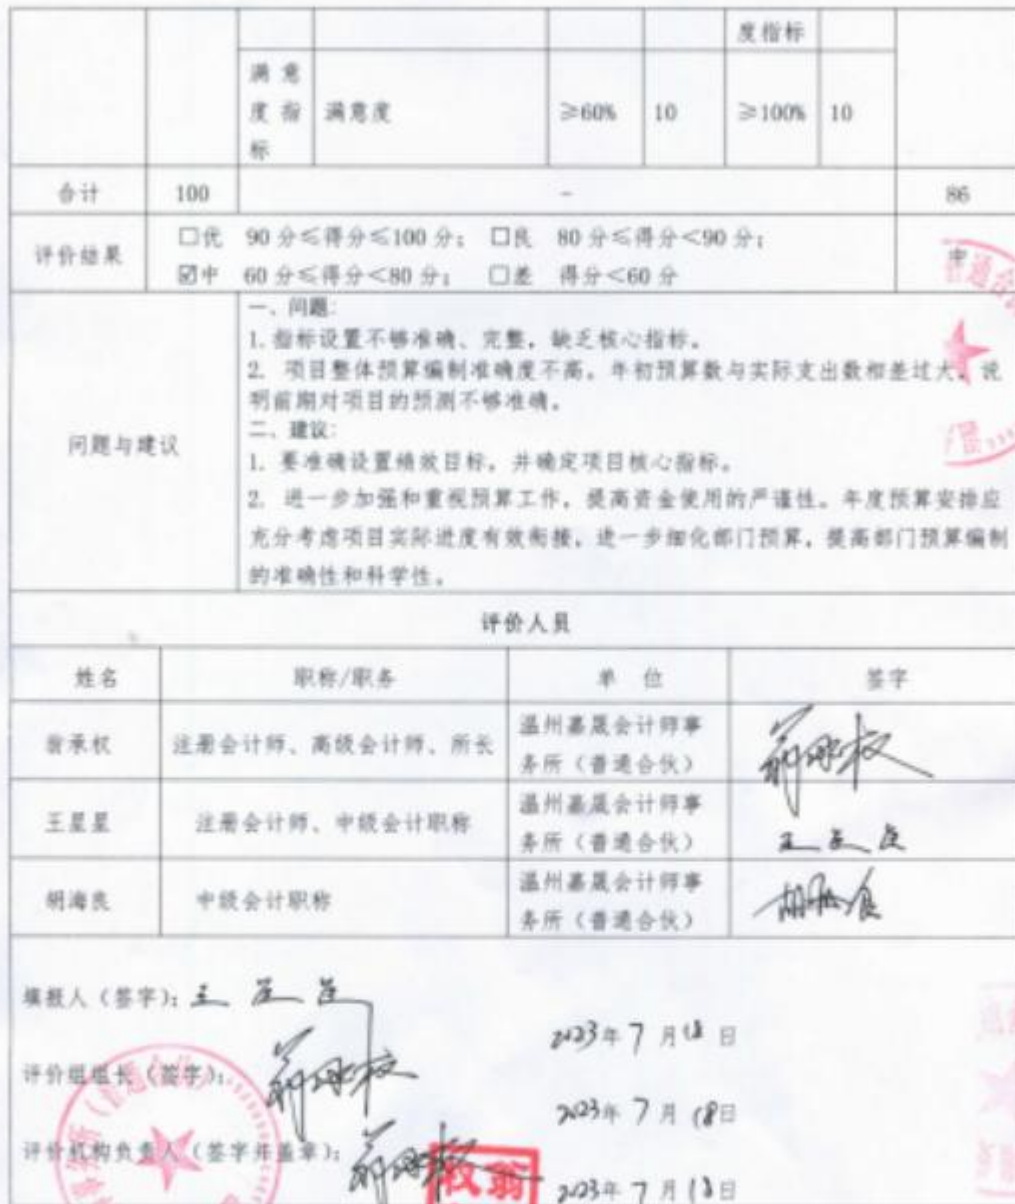 度指标
满意度指标 满意度 ≥60% 10 ≥100% 10
合计 100 - 86
评价结果 □优 90分≤得分≤100分; □良 80分≤得分<90分;
☑中 60分≤得分<80分; □差 得分<60分 中
一、问题:
1.指标设置不够准确、完整,缺乏核心指标。
2. 项目整体预算编制准确度不高,年初预算数与实际支出数相差过大,说
明前期对项目的预测不够准确。
问题与建议
二、建议:
1. 要准确设置绩效目标,并确定项目核心指标。
2. 进一步加强和重视预算工作,提高资金使用的严谨性。年度预算安排应
充分考虑项目实际进度有效衔接,进一步细化部门预算,提高部门预算编制
的准确性和科学性。
评价人员
姓名 职称/职务 单 位 签字
翁承权 注册会计师、高级会计师、所长 温州嘉晟会计师事
务所(普通合伙) 翁承权
王星星 注册会计师、中级会计职称 温州嘉晟会计师事
务所(普通合伙) 王星星
胡海良 中级会计职称 温州嘉晟会计师事
务所(普通合伙) 胡海良
填报人(签字):王星星
2023年7月18日
评价组组长(签字):翁承权
2023年7月18日
评价机构负责人(签字并盖章):翁承权
2023年7月18日